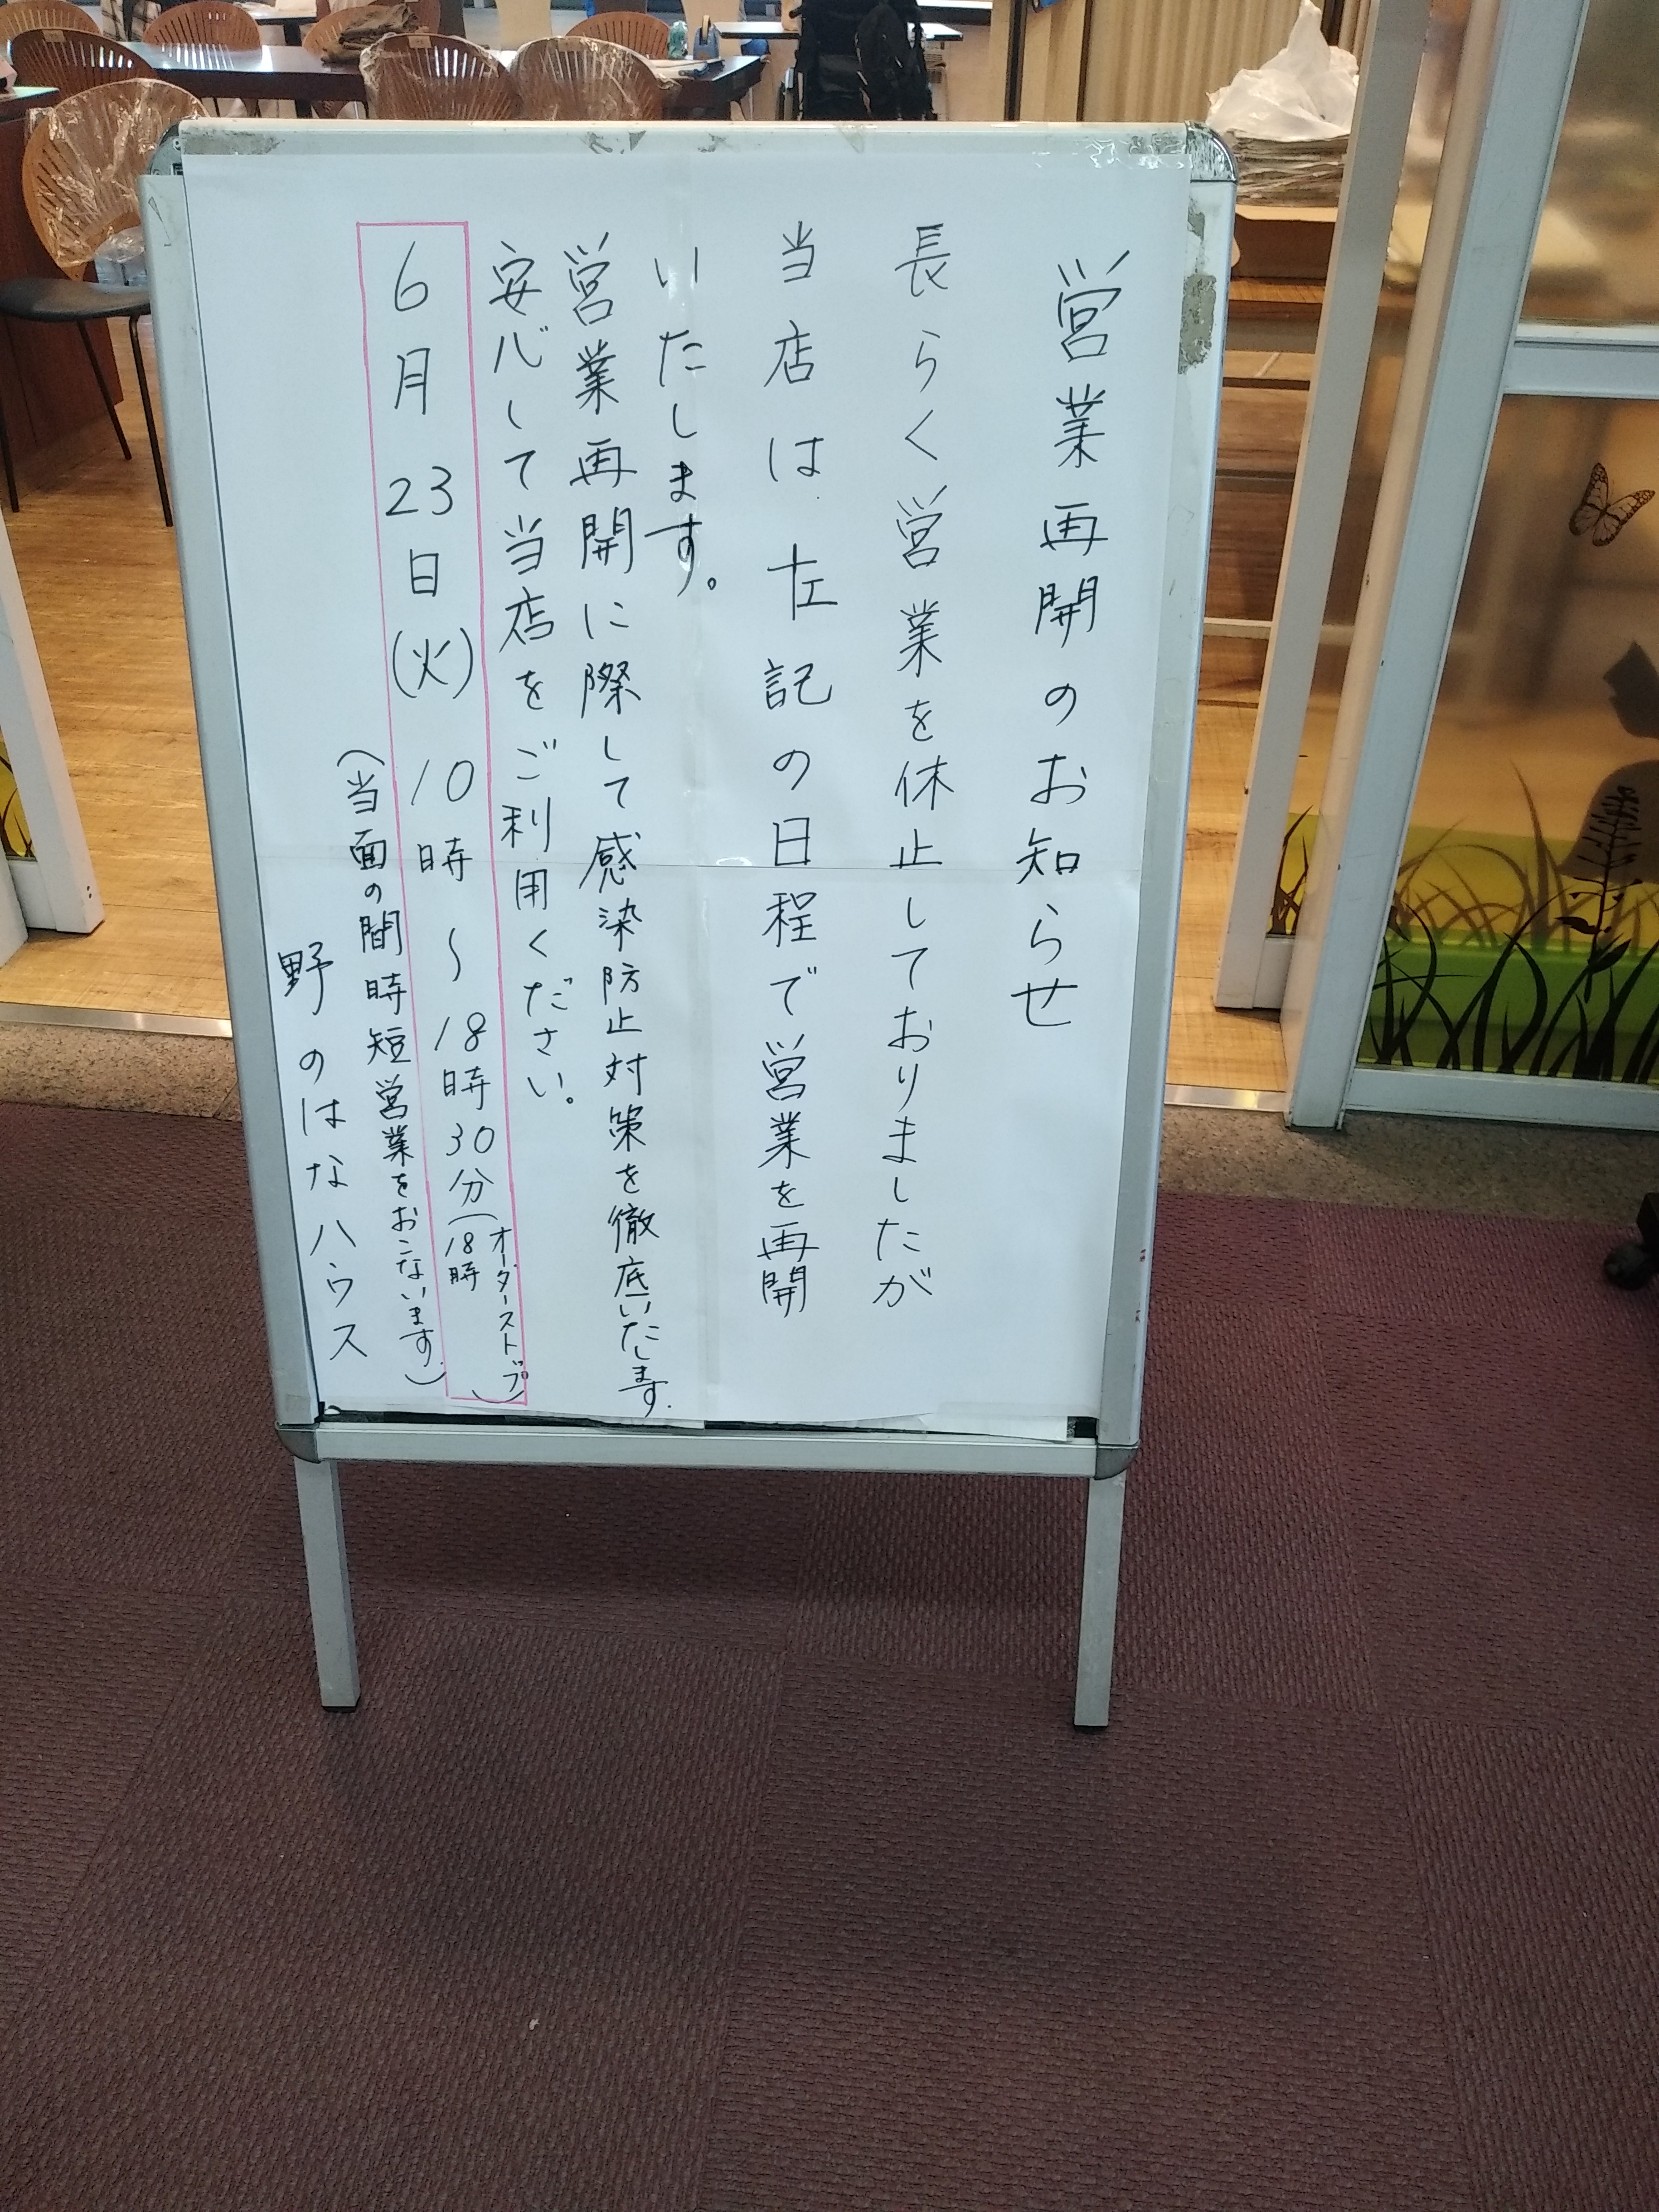 営業再開のお知らせ
長らく営業を休止しておりましたが
当店は左記の日程で営業を再開
いたします。
営業再開に際して感染防止対策を徹底いたします.
安心して当店をご利用ください。
6月23日(火) 10時〜18時30分(オーダーストップ18時)
(当面の間時短営業をおこないます。)
野のはなハウス